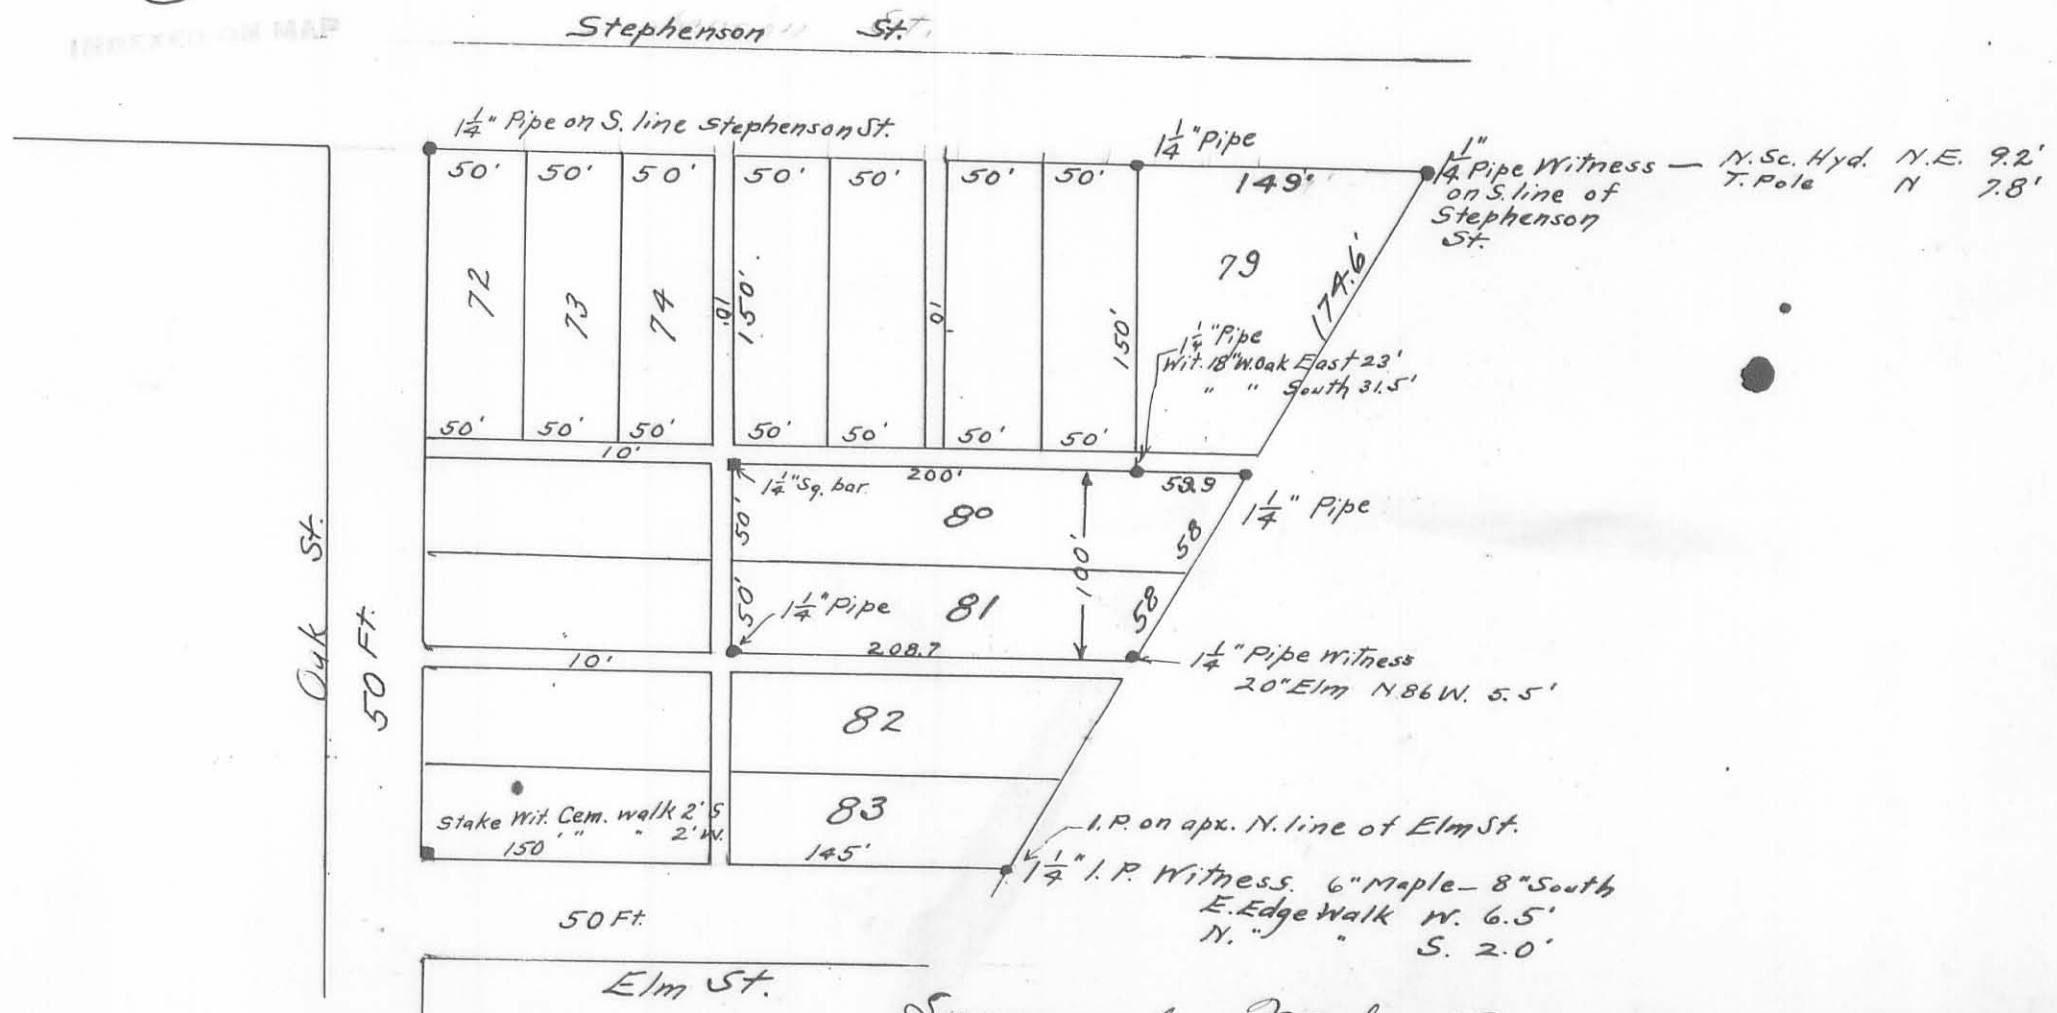 Stephenson St.
1 1/4" Pipe on S. line Stephenson St.
1 1/4" Pipe
1 1/4" Pipe Witness — N. Sc. Hyd. N.E. 9.2'
T. Pole N 7.8'
on S. line of
Stephenson
St.
50' 50' 50' 50' 50' 50' 50' 149'
72 73 74 10' 150' 10 150' 79 174.6'
1 1/4" Pipe
Wit. 18" W. Oak East 23'
" " South 31.5'
50' 50' 50' 50' 50' 50' 50'
10'
200'
1 1/4" Sq. bar.
50' 80 58
1 1/4" Pipe
100'
50' 81 58
1 1/4" Pipe
208.7
10'
1 1/4" Pipe Witness
20" Elm N.86 W. 5.5'
Oak St.
50 Ft.
82
83
Stake Wit. Cem. walk 2' S
" " 2' W.
150' 145'
I.P. on apx. N. line of Elm St.
1 1/4" I.P. Witness. 6" Maple — 8" South
E. Edge Walk W. 6.5'
N. " " S. 2.0'
50 Ft.
Elm St.